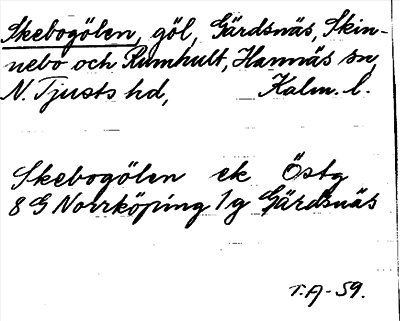 Skebogölen, göl, Gärdsnäs, Skin-
nebo och Rumhult, Hannäs sn,
N. Tjusts hd, Kalm. l.
Skebogölen ek Östg
8 G Norrköping 1g Gärdsnäs
T.A-59.